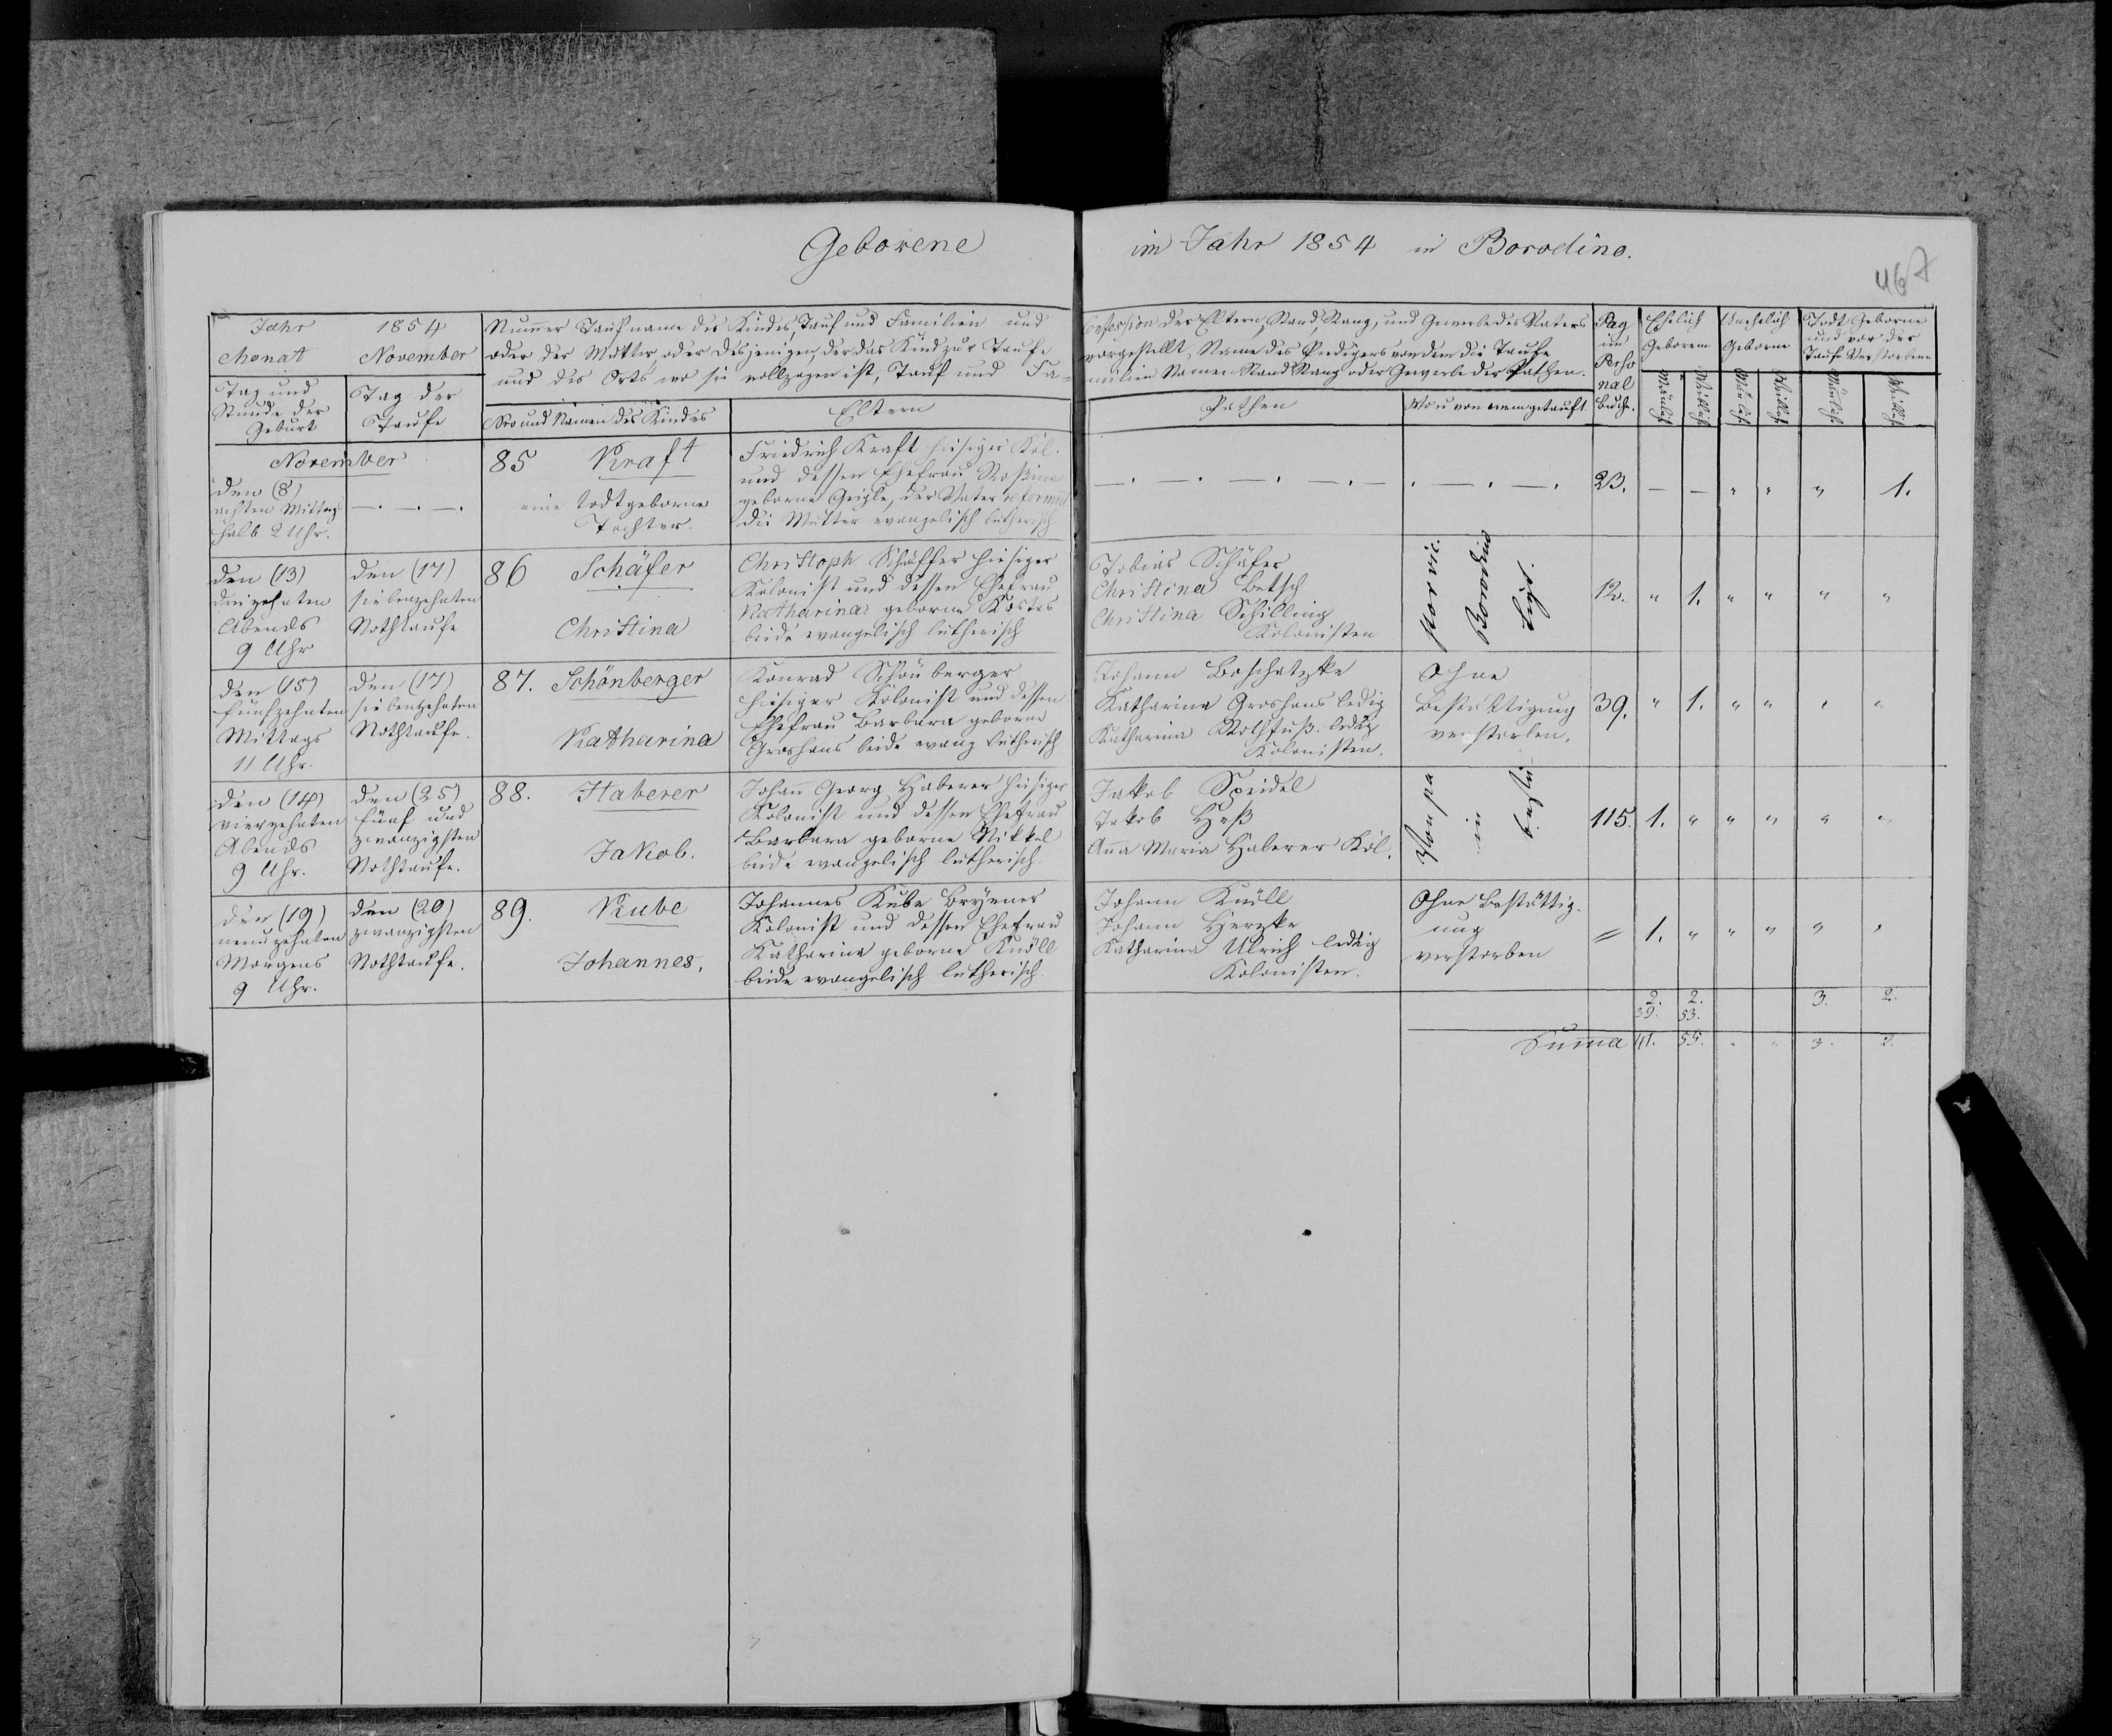 Geborene im Jahr 1854 in Borodino.
467
Jahr 1854
Monat November
Tag und
Stunde der
Geburt
Tag der
Taufe
Numer Taufname des Kindes, Tauf und Familien und
oder der Mutter, oder desjenigen, der das Kind zur Taufe
und des Orts wo sie vollzogen ist, Tauf und Fa-
Nro und Namen des Kindes
Eltern
Confession der Eltern, Stand, Rang, und Gewerbe des Vaters
vorgestellt, Name des Predigers von dem die Taufe
milien Namen Stand Rang oder Gewerbe der Pathen.
Pathen
Wo u von wem getauft
Pag
im
Perso
nal
buche.
Ehelich
Geborene
Unehelich
Geborne
Todt Geborne
und vor der
Taufe Verstorbene
Mänlich
Weiblich
Mänlich
Weiblich
Mänlich
Weiblich
November
den (8)
achten Mittags
halb 2 Uhr.
—.—.—.
85 Kraft
eine todtgeborne
Tochter.
Friedrich Kraft hiesiger Kol.
und dessen Ehefrau Rosina
geborne Geigle, der Vater reformirt
die Mutter evangelisch lutherisch
—.—.—.—.—.—.—.
23. — — " " " 1.
den (13)
dreizehnten
Abends
9 Uhr
den (17)
siebenzehnten
Nothtaufe
86 Schäfer
Christina
Christoph Schäffer hiesiger
Kolonist und dessen Ehefrau
Katharina geborne Kostes
beide evangelisch lutherisch
Tobias Schäfer
Christina Betsch
Christina Schilling
Kolonisten
Borodino
" 1. " " " "
den (15)
fünfzehnten
Mittags
11 Uhr.
den (17)
siebenzehnten
Nothtaufe.
87. Schönberger
Katharina
Konrad Schönberger
hiesiger Kolonist und dessen
Ehefrau Barbara geborne
Groshans beide evang lutherisch
Johann Boschatzke
Katharina Groshans ledig
Katharina Rothfuß ledig
Kolonisten.
Ohne
Bestättigung
verstorben.
39. " 1. " " " "
den (14)
vierzehnten
Abends
9 Uhr.
den (25)
fünf und
zwanzigsten
Nothtaufe.
88. Haberer
Jakob.
Johann Georg Haberer hiesiger
Kolonist und dessen Ehefrau
Barbara geborne Nikkel
beide evangelisch lutherisch.
Jakob Speidel
Jakob Heß
Anna Maria Haberer Kol.
115. 1. " " " " "
den (19)
neunzehnten
Morgens
9 Uhr.
den (20)
zwanzigsten
Nothtaufe.
89. Kube
Johannes.
Johannes Kube
Kolonist und dessen Ehefrau
Katharina geborne Knöll
beide evangelisch lutherisch.
Johann Knöll
Johann Herzke
Katharina Ulrich ledig
Kolonisten.
Ohne Bestättig-
ung
verstorben
= 1. " " " " "
2. 2. 3. 2.
39. 53.
Suma 41. 55. " " 3. 2.